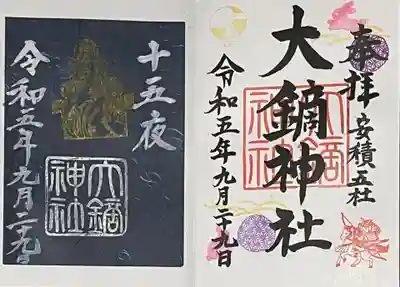 奉拝
安積五社
大鏑神社
大鏑神社
令和五年九月二十九日
十五夜
大鏑神社
令和五年九月二十九日